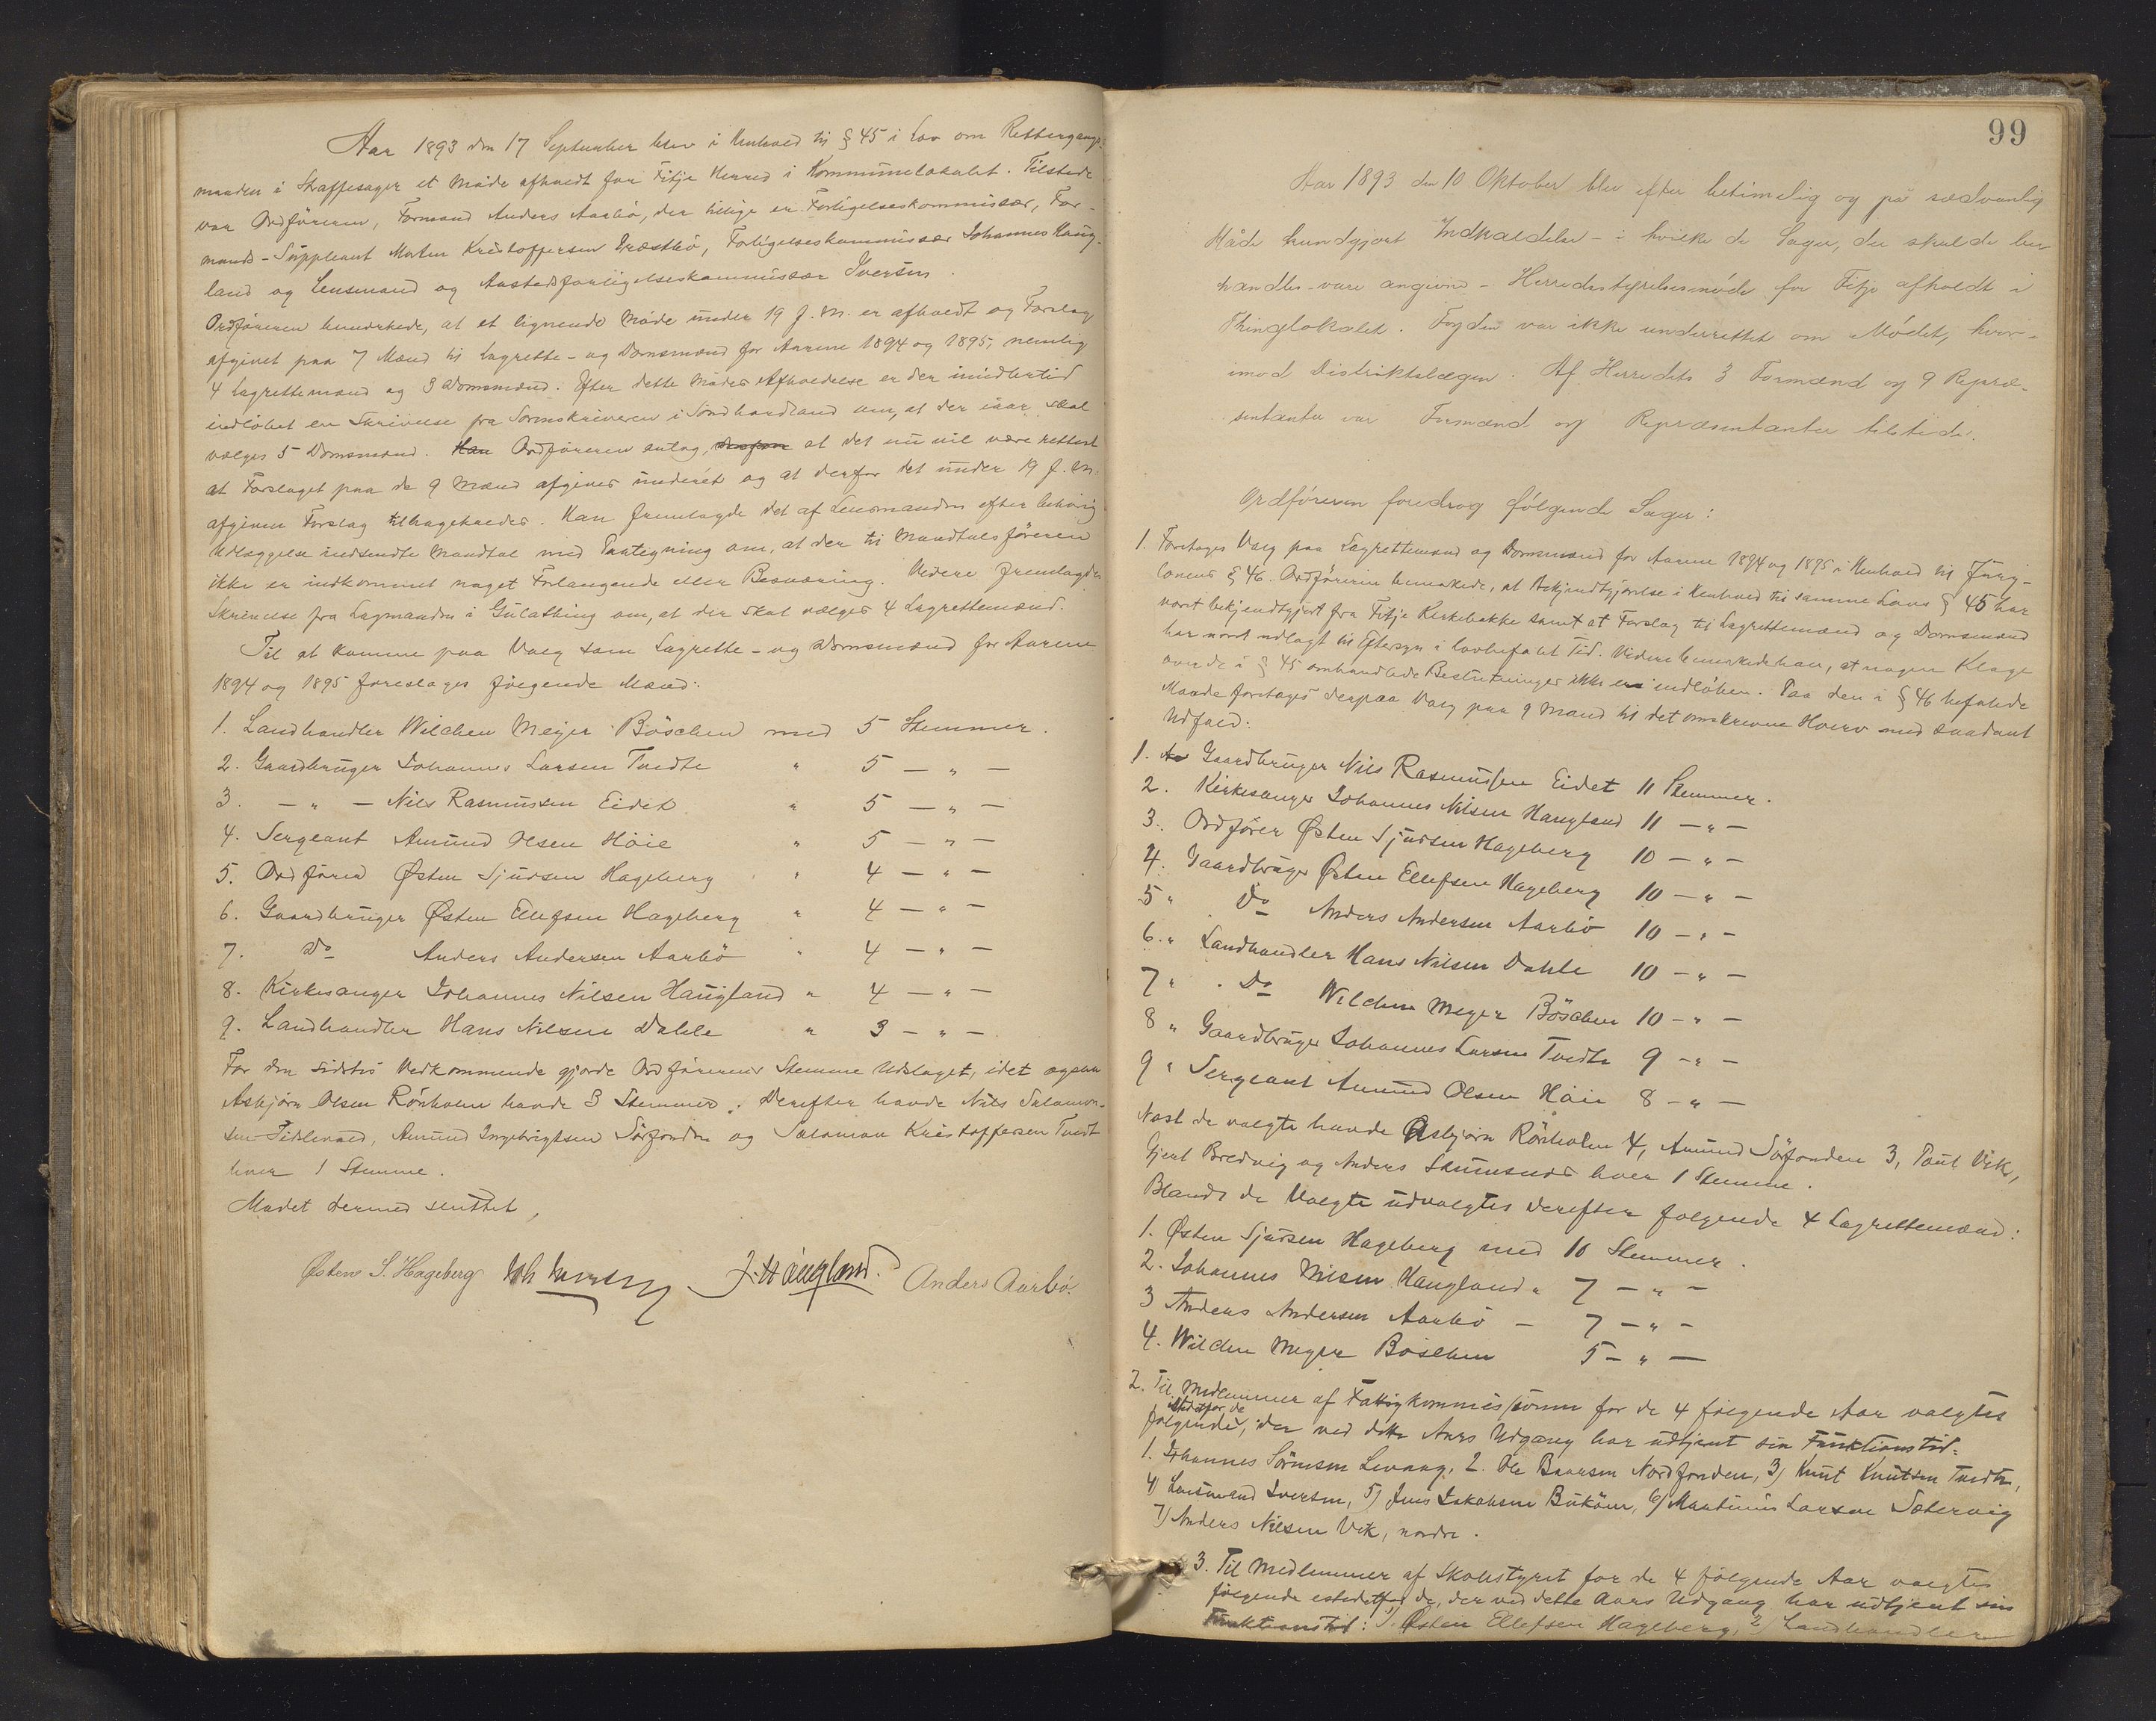 Aar 1893 den 17 September blev i Henhold til § 45 i Lov om Rettergangs-
maaden i Straffesager et Møde afholdt for Fitje Herred i Kommunelokalet. Tilstede
var Ordføreren, Formand Anders Aarbø, der tillige er Forligelseskommissær, For-
mands-Suppleant Morten Kristoffersen Træstbø, Forligelseskommissær Johannes Haug-
land og Lensmand og Aastedsforligelseskommissær Iversen.
Ordføreren bemærkede, at et lignende Møde under 19 f. M. er afholdt og Forslag
afgivet paa 7 Mænd til Lagrette- og Domsmænd for Aarene 1894 og 1895, nemlig
4 Lagrettemænd og 3 Domsmænd. Efter dette Mødes Afholdelse er der imidlertid
indløbet en Skrivelse fra Sorenskriveren i Søndhordland om, at der iaar skal
vælges 5 Domsmænd. Han Ordføreren antog, at det nu vil være rettest
at Forslaget paa de 9 Mænd afgives underét og at derfor det under 19 f. M.
afgivne Forslag tilbagekaldes. Han fremlagde det af Lensmanden efter behørig
Udlæggelse indsendte Mandtal med Paategning om, at der til Mandtalsføreren
ikke er indkommet noget Forlangende eller Besværing. Videre fremlagdes
Skrivelse fra Lagmanden i Gulathing om, at der skal vælges 4 Lagrettemænd.
Til at komme paa Valg som Lagrette- og Domsmænd for Aarene
1894 og 1895 foreslages følgende Mænd:
1. Landhandler Wilchen Meyer Böschen med 5 Stemmer.
2. Gaardbruger Johannes Larsen Tvedte " 5 — " —
3. — " — Nils Rasmussen Eidet " 5 — " —
4. Sergeant Amund Olsen Høie " 5 — " —
5. Ordfører Østen Sjursen Hageberg " 4 — " —
6. Gaardbruger Østen Ellefsen Hageberg " 4 — " —
7. Do Anders Andersen Aarbø " 4 — " —
8. Kirkesanger Johannes Nilsen Haugland " 4 — " —
9. Landhandler Hans Nilsen Dahle " 3 — " —
For den sidstes Vedkommende gjorde Ordførerens Stemme Udslaget, idet ogsaa
Asbjørn Olsen Rönholm havde 3 Stemmer. Derefter havde Nils Salamon-
sen Fidlevold, Amund Ingebrigtsen Sørfonden og Salamon Kristoffersen Tvedt
hver 1 Stemme.
Mødet dermed sluttet,
Østen S. Hageberg J. Haugland. Anders Aarbø.
99
Aar 1893 den 10 Oktober blev efter betimelig og på sædvanlig
Måde kundgjort Indkaldelse - i hvilke de Sager, der skulde be-
handles - vare angivne - Herredsstyrelsesmøde for Fitje afholdt i
Thinglokalet. Fogden var ikke underrettet om Mödet, hvor-
imod Distriktslægen. Af Herredets 3 Formænd og 9 Repræ-
sentanter var Formænd og Repræsentanter tilstede.
Ordföreren foredrog fölgende Sager:
1. Foretages Valg paa Lagrettemænd og Domsmænd for Aarene 1894 og 1895 i Henhold til Jury-
lovens § 46. Ordføreren bemærkede, at Bekjendtgjørelse i Henhold til samme Lovs § 45 har
været bekjendtgjort fra Fitje Kirkebakke samt at Forslag til Lagrettemænd og Domsmænd
har været udlagt til Eftersyn i lovbefalet Tid. Videre bemærkede han, at nogen Klage
over de i § 45 omhandlede Beslutninger ikke er indløben. Paa den i § 46 befalede
Maade foretages derpaa Valg paa 9 Mænd til det omskrevne Hverv med saadant
Udfald:
1. Gaardbruger Nils Rasmussen Eidet 11 Stemmer.
2. Kirkesanger Johannes Nilsen Haugland 11 — " —
3. Ordfører Østen Sjursen Hageberg 10 — " —
4. Gaardbruger Østen Ellefsen Hageberg 10 — " —
5 " Do Anders Andersen Aarbø 10 — " —
6. " Landhandler Hans Nilsen Dahle 10 — " —
7 " Do Wilchen Meyer Böschen 10 — " —
8 " Gaardbruger Johannes Larsen Tvedte 9 — " —
9 " Sergeant Amund Olsen Høie 8 — " —
Næst de valgte havde Asbjørn Rönholm 4, Amund Sørfonden 3, Poul Vik,
Gjert Bredvig og Anders Skumsnes hver 1 Stemme.
Blandt de Valgte udvalgtes derefter følgende 4 Lagrettemænd:
1. Østen Sjursen Hageberg med 10 Stemmer.
2. Johannes Nilsen Haugland " 7 — " —
3 Anders Andersen Aarbø — 7 — " —
4. Wilchen Meyer Böschen 5 — " —
2. Til Medlemmer af Fattigkommissionen for de 4 følgende Aar valgtes
følgende istedetfor de, der ved dette Aars Udgang har udtjent sin Funktionstid:
1. Johannes Sörensen Levaag, 2. Ole Baarsen Nordfonden, 3) Knut Knutsen Tvedte,
4) Lensmand Iversen, 5) Jens Jakobsen Buköen, 6) Martinus Larsen Sætervig
7) Anders Nilsen Vik, nordre.
3. Til Medlemmer af Skolestyret for de 4 følgende Aar valgtes
følgende istedetfor de, der ved dette Aars Udgang har udtjent sin
Funktionstid: 1. Østen Ellefsen Hageberg, 2) Landhandler